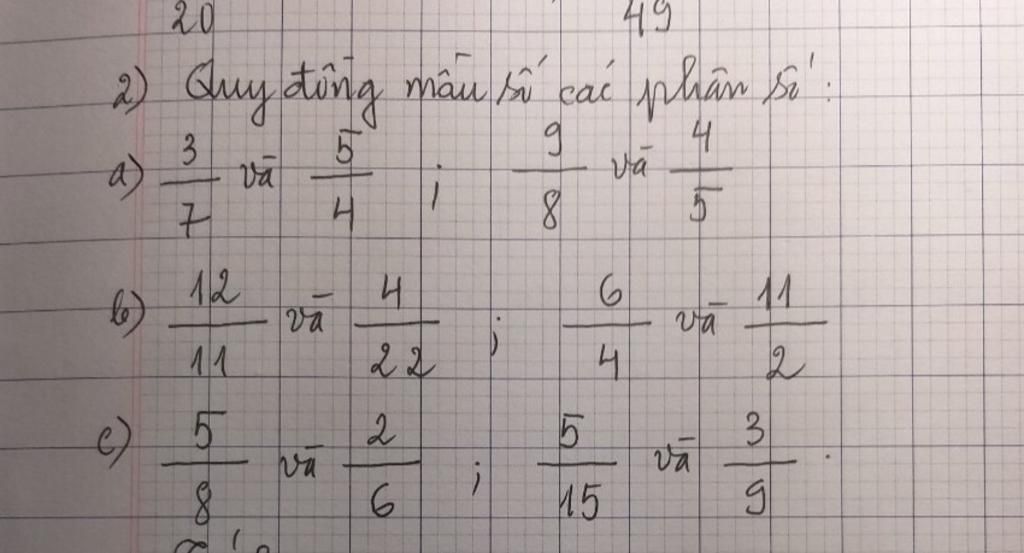 20 49
2) Quy đồng mẫu số các phân số:
a) 3/7 và 5/4 ; 9/8 và 4/5
b) 12/11 và 4/22 ; 6/4 và 11/2
c) 5/8 và 2/6 ; 5/15 và 3/9.